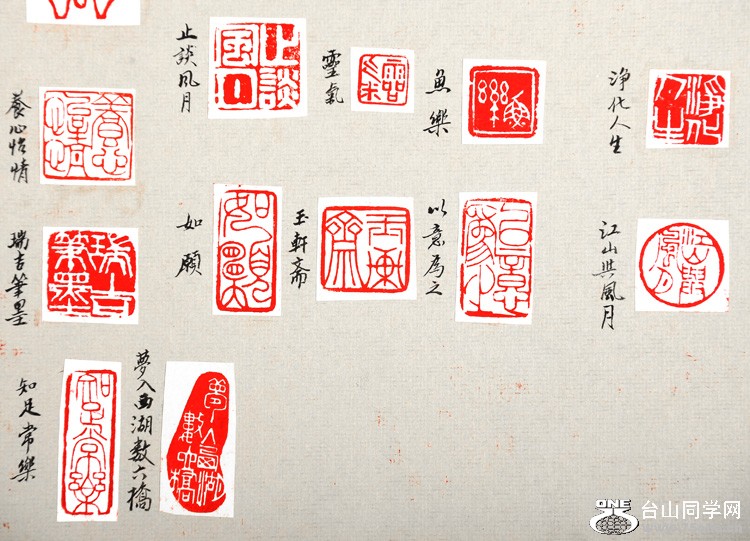 止談風月
靈氣
魚樂
淨化人生
養心怡情
如願
玉軒斋
以意為之
江山與風月
瑞吉筆墨
知足常樂
夢入西湖数六橋
ONE
台山同学网